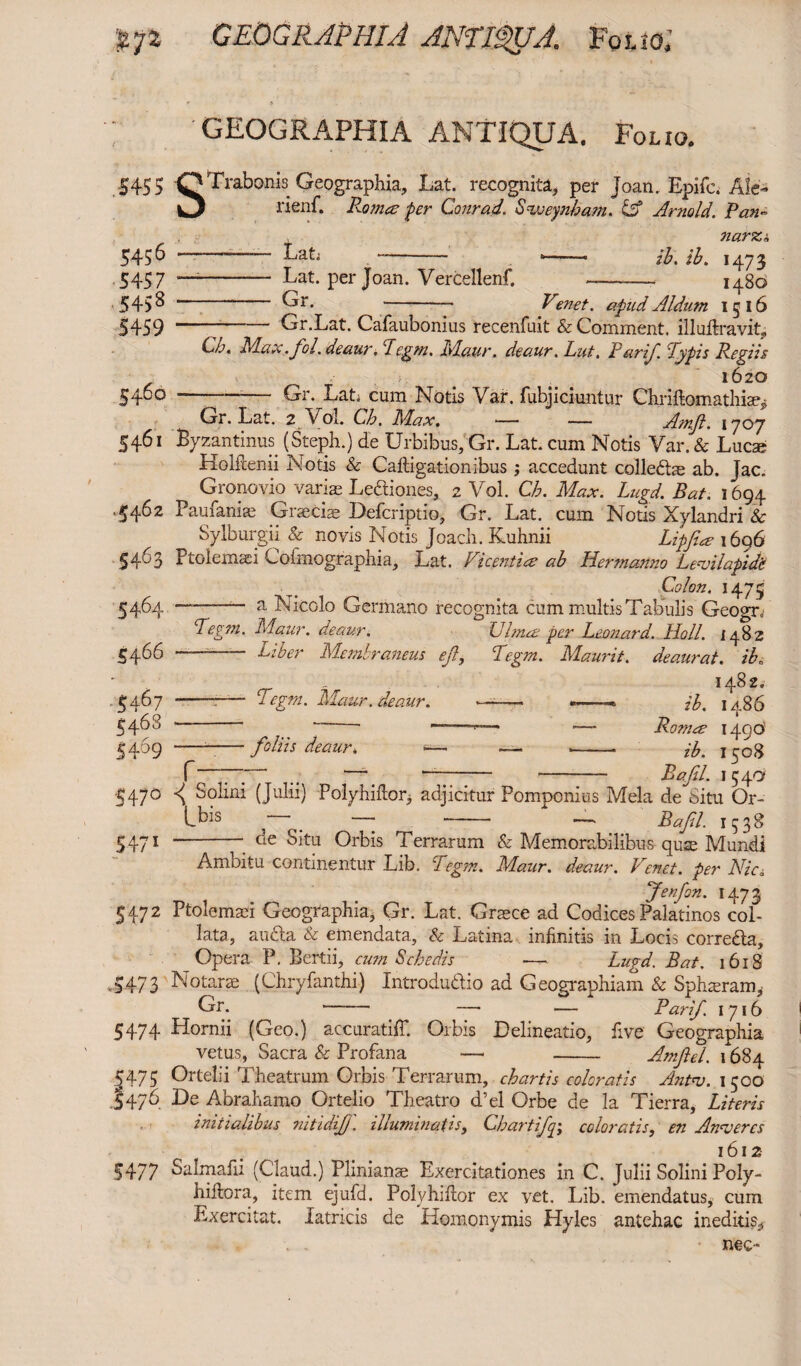 272 GEOGRAPHIA ANTIQUA. Folio.
GEOGRAPHIA ANTIQUA. Folio.
5455 STrabonis Geographia, Lat. recognita, per Joan. Epifc. Ale-
rienf. Romæ per Conrad. Sweynham. & Arnold. Pan-
narz.
5456 ——— Lat. ——— —— ib. ib. 1473
5457 ——— Lat. per Joan. Vercellenf. ——— 1480
5458 ——— Gr. ——— Venet. apud Aldum 1516
5459 ——— Gr.Lat. Cafaubonius recenfuit & Comment. illuftravit,
Ch. Max. fol. deaur. Tegm. Maur. deaur. Lut. Parif. Typis Regiis
1620
5460 ——— Gr. Lat. cum Notis Var. fubjiciuntur Chriftomathiæ,
Gr. Lat. 2 Vol. Ch. Max. — — Amft. 1707
5461 Byzantinus (Steph.) de Urbibus, Gr. Lat. cum Notis Var. & Lucæ
Holftenii Notis & Caftigationibus ; accedunt collectæ ab. Jac.
Gronovio variæ Lectiones, 2 Vol. Ch. Max. Lugd. Bat. 1694
5462 Paufaniæ Græciæ Defcriptio, Gr. Lat. cum Notis Xylandri &
Sylburgii & novis Notis Joach. Kuhnii Lipfiæ 1696
5463 Ptolemæi Cofmographia, Lat. Vicentiæ ab Hermanno Levilapide
Colon. 1475
5464 ——— a Nicolo Germano recognita cum multis Tabulis Geogr.
Tegm. Maur. deaur. Ulmæ per Leonard. Holl. 1482
5466 ——— Liber Membraneus eft, Tegm. Maurit. deaurat. ib.
1482.
5467 ——— Tegm. Maur. deaur. —— —— ib. 1486
5468 ——— —— ——— — Romæ 1490
5469 ——— foliis deaur. — — —— ib. 1508
{ ——— — —— ——— Bafil. 1540
5470 { Solini (Julii) Polyhiftor, adjicitur Pomponius Mela de Situ Or-
{bis — — —— — Bafil. 1538
5471 ——— de Situ Orbis Terrarum & Memorabilibus quæ Mundi
Ambitu continentur Lib. Tegm. Maur. deaur. Venet. per Nic.
Jenfon. 1473
5472 Ptolemæi Geographia, Gr. Lat. Græce ad Codices Palatinos col-
lata, aucta & emendata, & Latina infinitis in Locis correcta,
Opera P. Bertii, cum Schedis — Lugd. Bat. 1618
5473 Notaræ (Chryfanthi) Introductio ad Geographiam & Sphæram,
Gr. —— — — Parif. 1716
5474 Hornii (Geo.) accuratiff. Orbis Delineatio, five Geographia
vetus, Sacra & Profana — —— Amftel. 1684
5475 Ortelii Theatrum Orbis Terrarum, chartis coloratis Antv. 1500
5476 De Abrahamo Ortelio Theatro d'el Orbe de la Tierra, Literis
initialibus nitidiff. illuminatis, Chartifq; coloratis, en Anveres
1612
5477 Salmafii (Claud.) Plinianæ Exercitationes in C. Julii Solini Poly-
hiftora, item ejufd. Polyhiftor ex vet. Lib. emendatus, cum
Exercitat. Iatricis de Homonymis Hyles antehac ineditis,
nec-